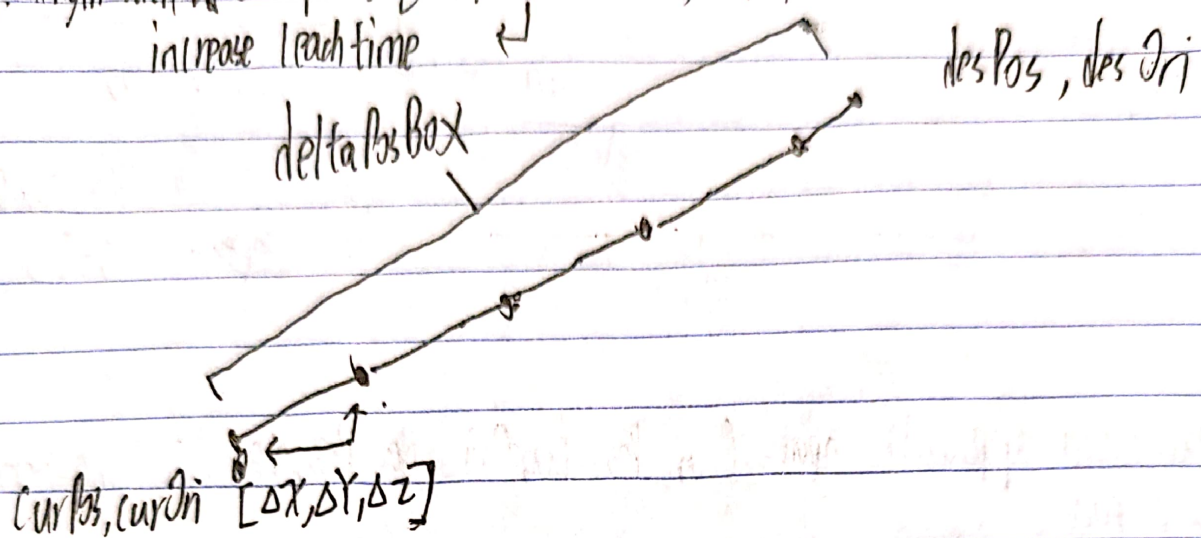 increase 1 each time
desPos, desOri
deltaPosBox
curPos, curOri [ΔX, ΔY, ΔZ]